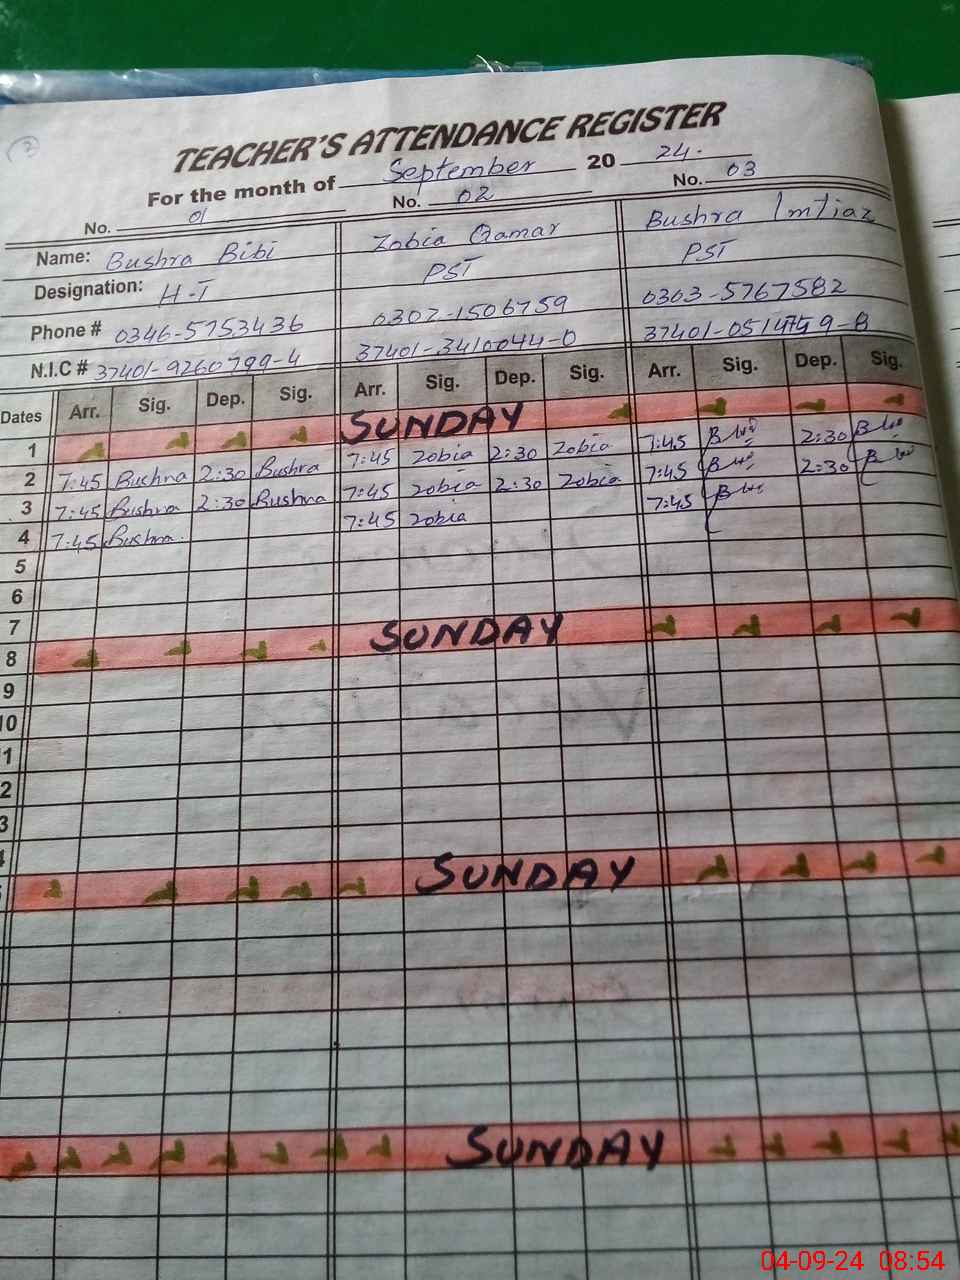 2
TEACHER'S ATTENDANCE REGISTER
For the month of September 20 24.
No. 01 No. 02 No. 03
Name: Bushra Bibi Zobia Qamar Bushra Imtiaz
Designation: H-T PST PST
Phone # 0346-5753436 0302-1506759 0303-5767582
N.I.C # 37401-9260799-4 37401-3410044-0 37401-0514759-8
Dates Arr. Sig. Dep. Sig. Arr. Sig. Dep. Sig. Arr. Sig. Dep. Sig.
1 SUNDAY
2 7:45 Bushra 2:30 Bushra 7:45 Zobia 2:30 Zobia 7:45 2:30
3 7:45 Bushra 2:30 Bushra 7:45 Zobia 2:30 Zobia 7:45 2:30
4 7:45 Bushra 7:45 Zobia 7:45
5
6
7
8 SUNDAY
9
10
1
2
3
4
SUNDAY
SUNDAY
04-09-24 08:54